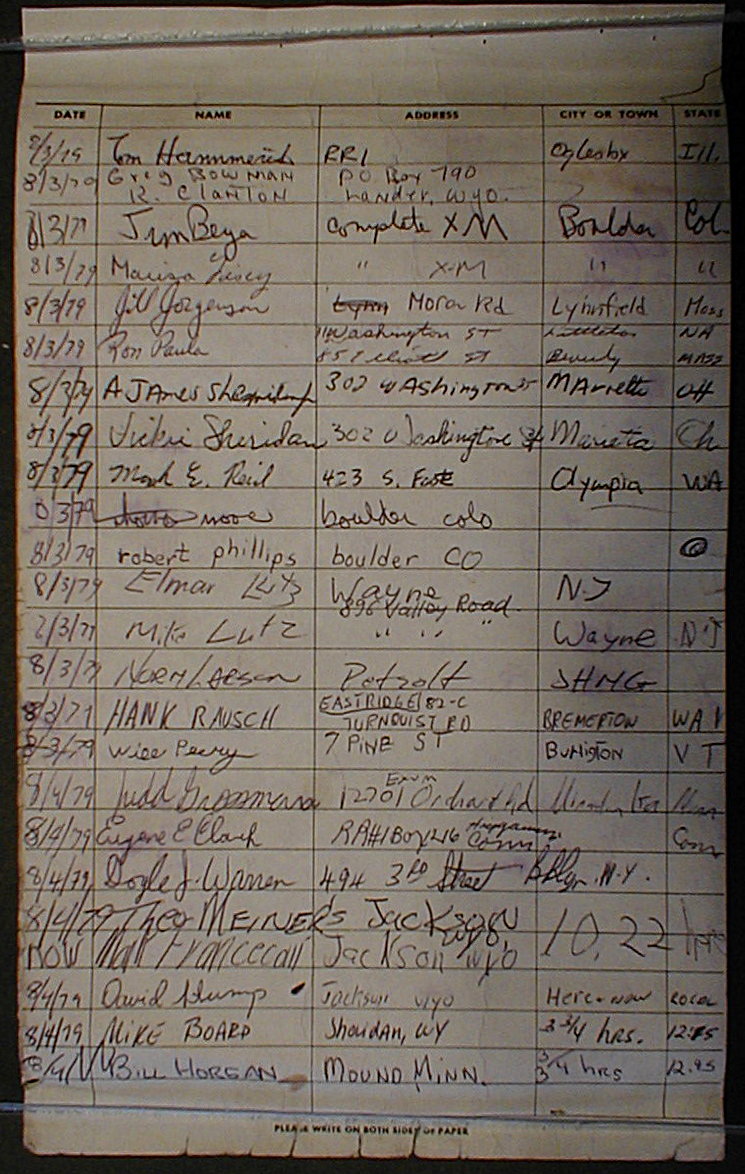 DATE NAME ADDRESS CITY OR TOWN STATE
8/3/79 Tom Hammerich RR1 Oglesby Ill.
8/3/79 Greg Bowman PO Box 790
R. Clanton Lander, Wyo.
8/3/79 Jim Beya complete XM Boulder Col
8/3/79 Marisa " X-M " "
8/3/79 Jill Jorgenson Lynn Moran Rd Lynnfield Mass
11 Washington ST Littleton
8/3/79 Ron Paula 85 Elliott ST Beverly MASS
8/3/79 A JAmes 302 WAshington ST MArietta OH
8/3/79 Vickie Sheridan 302 Washington St Marietta Oh
8/3/79 Mark E. Reid 423 S. Olympia WA
8/3/79 moore boulder colo
8/3/79 robert phillips boulder CO
8/3/79 Elmar Lutz Wayne NJ
896 Valley Road
8/3/79 Mike Lutz " " " Wayne NJ
8/3/79 Norm Larson Petzoldt JHMG
8/3/79 HANK RAUSCH EASTRIDGE 82-C
TURNQUIST RD BREMERTON WA
8/3/79 Will Perry 7 PINE ST Burlington VT
Exum
8/4/79 Judd Grossman 12701 Orchard Rd
8/4/79 Eugene E Clark RR#1 Box 216 Conn Conn
8/4/79 Doyle J. Warren 494 3RD Street Bklyn. N.Y.
8/4/79 Theo MEINERS JACKSON 10.22 hrs
wyo.
NOW Jackson wyo
8/4/79 David Jackson wyo Here-now LOCAL
8/4/79 MIKE BOARD Sheridan, WY 3 3/4 hrs.
BILL HORGAN MOUND MINN. 3 3/4 hrs
PLEASE WRITE ON BOTH SIDES OF PAPER